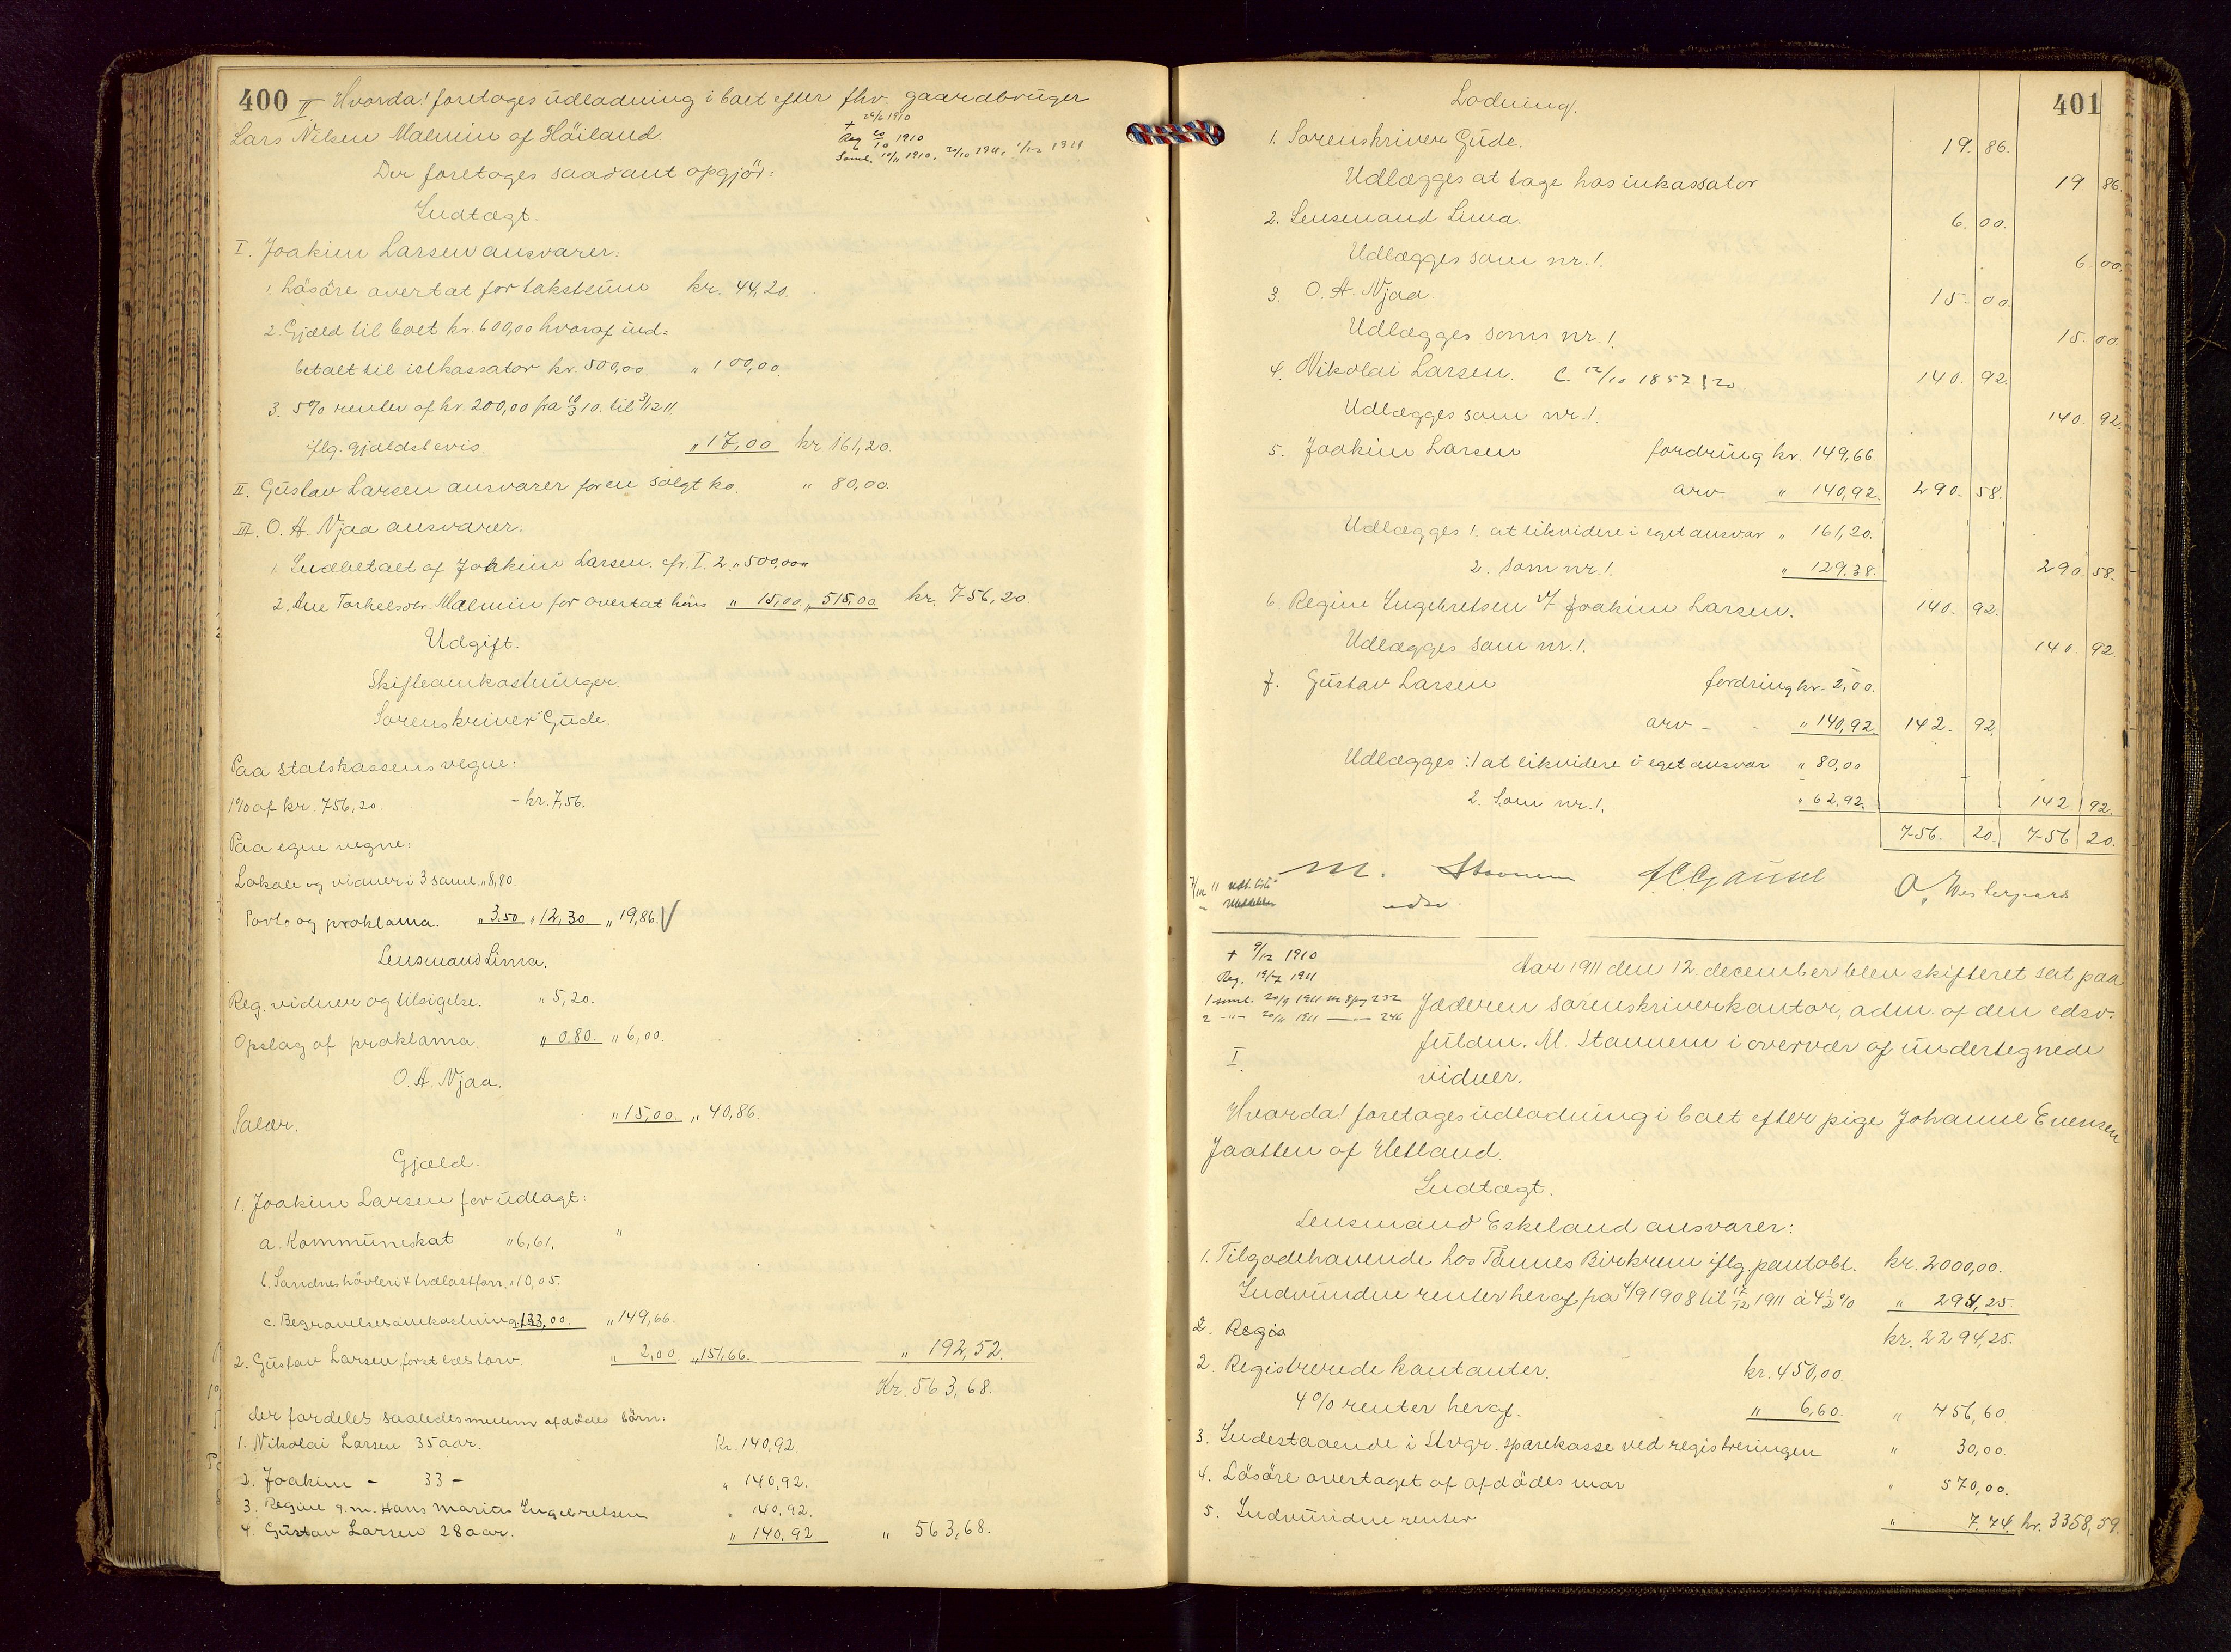 400 II Hvorda! foretoges udlodning i boet efter fhv. gaardbruger
Lars Nilsen Malmin af Höiland.
+ 24/6 1910
Reg 20/10 1910
Saml. 10/11 1910, 20/10 1911, 1/12 1911
Der foretoges saadant opgjör:
Indtægt.
I. Joakim Larsen ansvarer:
1. Lösöre overtat for takstsum kr. 44,20.
2. Gjæld til boet kr. 600,00 hvoraf ind-
betalt til istkassator kr. 500,00. " 100,00.
3. 5% renter af kr. 200,00 fra 10/3 10. til 3/12 11.
iflg. gjældsbevis. " 17,00 kr 161,20.
II. Gustav Larsen ansvarer for en solgt ko. " 80,00.
III. O. A. Njaa ansvarer:
1. Indbetalt af Joakim Larsen. cfr. I. 2. " 500,00
2. Ane Torkelsdtr. Malmin for overtat höns " 15,00 " 515,00 kr. 756,20
Udgift.
Skifteomkostninger.
Sorenskriver Gude.
Paa statskassens vegne:
1% af kr. 756,20. - kr. 7,56.
Paa egne vegne:
Lokale og vidner i 3 saml. " 8,80.
Porto og proklama. " 3,50 " 12,30 " 19,86. √
Lensmand Lima.
Reg. vidner og tilsigelse. " 5,20.
Opslag af proklama. " 0,80. " 6,00.
O. A. Njaa.
Salær. " 15,00. " 40,86.
Gjæld.
1. Joakim Larsen for udlagt:
a. Kommuneskat " 6,61. "
b. Sandnes hövleri & trælastforr. " 10,05.
c. Begravelsesomkostninger 133,00. " 149,66.
2. Gustav Larsen, for et læs torv. " 2,00. " 151,66. " 192,52.
Kr. 563,68.
der fordeles saaledes mellem afdödes börn:
1. Nikolai Larsen 35 aar. Kr. 140,92.
2. Joakim - 33 - " 140,92.
3. Regine g.m. Hans Maria Ingebretsen " 140,92.
4. Gustav Larsen 28 aar. " 140,92. " 563,68.
401
Lodning.
1. Sorenskriver Gude. 19. 86.
Udlægges at tage hos inkassator 19 86.
2. Lensmand Lima. 6. 00.
Udlægges som nr. 1. 6. 00.
3. O. A. Njaa 15. 00.
Udlægges som nr. 1. 15. 00.
4. Nikolai Larsen. 140. 92.
Udlægges som nr. 1. 140. 92.
5. Joakim Larsen fordring kr. 149,66.
arv " 140,92. 290. 58.
Udlægges 1. at likvidere i eget ansvar " 161,20.
2. som nr 1. " 129,38. 290. 58.
6. Regine Ingebretsen v/ Joakim Larsen. 140. 92.
Udlægges som nr. 1. 140. 92.
7. Gustav Larsen fordring kr. 2,00.
arv - - " 140,92. 142. 92.
Udlægges: 1 at likvidere i eget ansvar " 80,00
2. Som nr. 1. " 62,92. 142. 92.
756. 20. 756 20.
7/12 11 udt. liste
M. Stannem
edsv.
O. Westergaard
+ 9/12 1910
Reg. 19/7 1911
1 saml. 20/9 1911 nr 8 pg 232
2 -"- 20/11 1911 -"- 246
I.
Aar 1911 den 12. december blev skifteret sat paa
Jæderen sorenskriverkontor, adm. af den edsv.
fuldm. M. Stannem i overvær af undertegnede
vidner.
Hvorda! foretoges udlodning i boet efter pige Johanne Evensen
Jaatten af Hetland.
Indtægt.
Lensmand Eskeland ansvarer:
1. Tilgodehavende hos Tönnes Birkrem iflg. pantobl. kr. 2000,00.
Indvundne renter heraf fra 4/9 1908 til 12/12 1911 à 4 1/2 % " 294,25.
2. Regis kr. 2294,25.
2. Registrerede kontanter. kr. 450,00.
4% renter heraf. " 6,60. " 456,60.
3. Indestaaende i Stvgr. sparekasse ved registreringen " 30,00.
4. Lösöre overtaget af afdödes mor " 570,00.
5. Indvundne renter " 7.74 kr. 3358,59.